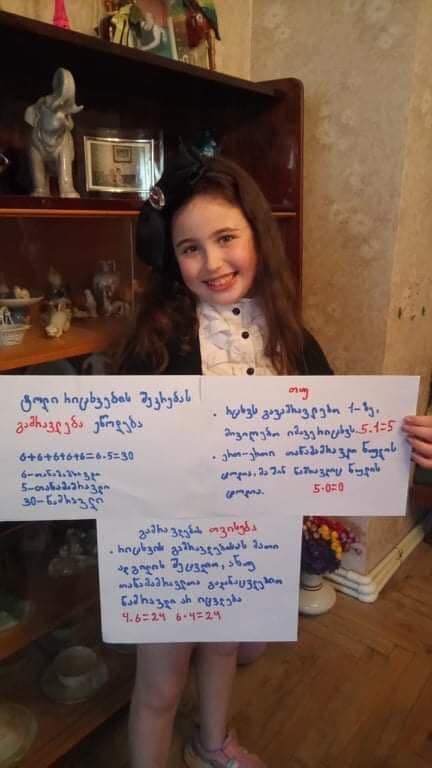 ტოლი რიცხვების შეკრებას
გამრავლება ეწოდება
6+6+6+6+6=6·5=30
6-თანამამრავლი
5-თანამამრავლი
30-ნამრავლი
თუ
· რიცხვს გავამრავლებთ 1-ზე,
მივიღებთ იმავე რიცხვს. 5·1=5
· ერთ-ერთი თანამამრავლი ნულის
ტოლია, მაშინ ნამრავლიც ნულის
ტოლია. 5·0=0
გამრავლების თვისება
· რიცხვის გამრავლებისას მათი
ადგილის შეცვლით, ანუ
თანამამრავლთა გადანაცვლებით
ნამრავლი არ იცვლება
4·6=24 6·4=24